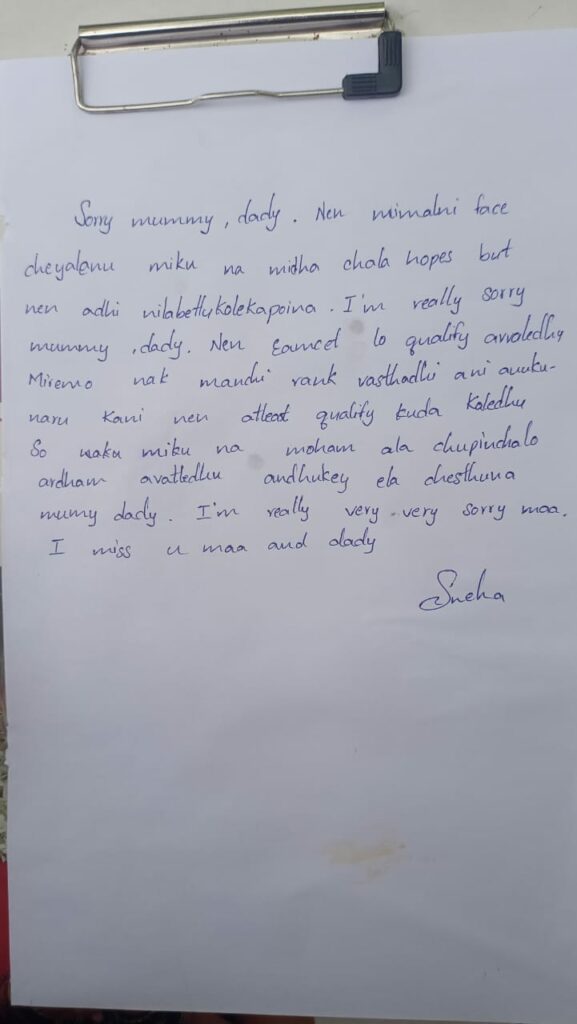 Sorry mummy, dady. Nen mimalni face
cheyalanu miku na midha chala hopes but
nen adhi nilabettukolekapoina. I'm really sorry
mummy, dady. Nen Eamcet lo qualify avvaledhu
Miremo nak manchi rank vasthadhi ani anuku-
naru kani nen atleast qualify kuda kaledhu
So naku miku na moham ala chupinchalo
ardham avatledhu andhukey ela chesthuna
mumy dady. I'm really very very sorry maa.
I miss u maa and dady
Sneha